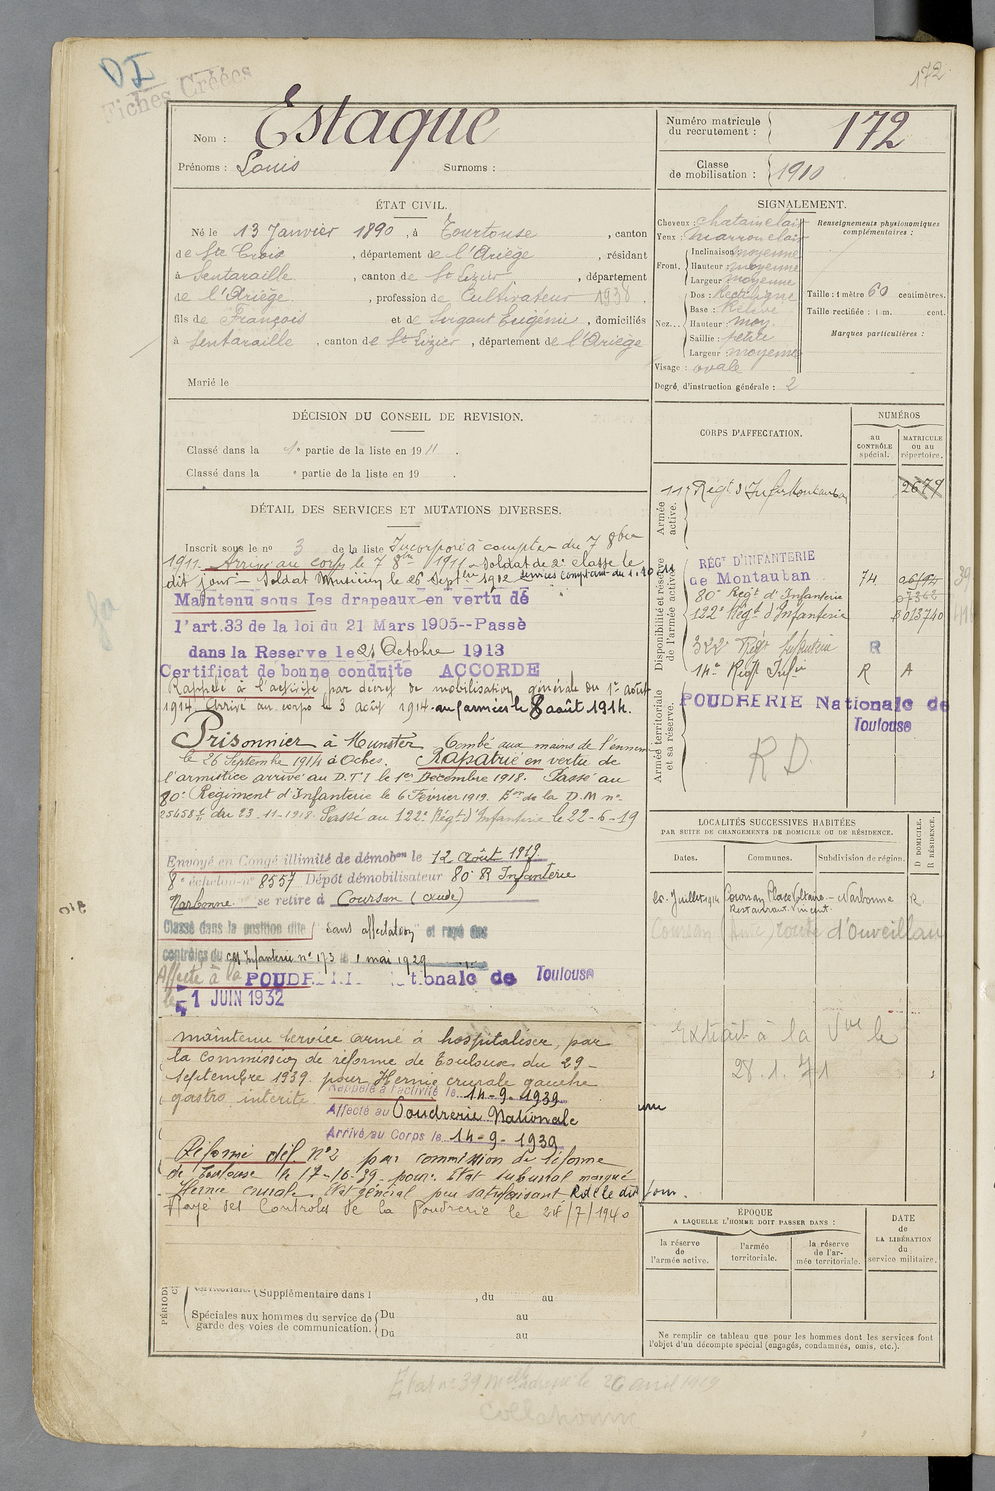 DI
Fiches Créées
172
Nom : Estaque
Prénoms : Louis Surnoms :
Numéro matricule du recrutement : 172
Classe de mobilisation : 1910
ÉTAT CIVIL.
Né le 13 Janvier 1890, à Tourtouse, canton
de Ste Croix, département de l'Ariège, résidant
à Lentaraille, canton de St Lizier, département
de l'Ariège, profession de Cultivateur 1938.
fils de François et de Sirgant Eugénie, domiciliés
à Lentaraille, canton de St Lizier, département de l'Ariège
Marié le
SIGNALEMENT.
Cheveux : chatain clair
Yeux : marron clair
Front. Inclinaison moyenne
Hauteur : moyenne
Largeur : moyenne
Nez... Dos : Rectiligne
Base : Relevé
Hauteur : moy.
Saillie : petite
Largeur : moyenne
Visage : ovale
Degré d'instruction générale : 2
Renseignements physionomiques complémentaires :
Taille : 1 mètre 60 centimètres.
Taille rectifiée : 1 m. cent.
Marques particulières :
DÉCISION DU CONSEIL DE REVISION.
Classé dans la 1e partie de la liste en 1911.
Classé dans la e partie de la liste en 19 .
DÉTAIL DES SERVICES ET MUTATIONS DIVERSES.
Inscrit sous le no 3 de la liste Incorporé à compter du 7 8bre
1911. Arrivé au corps le 7 8bre 1911. Soldat de 2e classe le
dit jour. Soldat Musicien le 26 Septbre 1912 services comptant du 1.10.11
Maintenu sous les drapeaux en vertu de
l'art.33 de la loi du 21 Mars 1905--Passé
dans la Reserve le 21 Octobre 1913
Certificat de bonne conduite ACCORDE
Rappelé à l'activité par décret de mobilisation générale du 1er août
1914 Arrivé au corps le 3 août 1914. aux armées le 8 août 1914.
Prisonnier à Munster Tombé aux mains de l'ennemi
le 26 Septembre 1914 à Oches. Rapatrié en vertu de
l'armistice arrivé au D.T.I le 1er Décembre 1918. Passé au
80e Régiment d'Infanterie le 6 Février 1919. Don de la D.M no
25458 du 23-11-1918. Passé au 122e Régt d'Infanterie le 22-6-19
Envoyé en Congé illimité de démobon le 12 Août 1919
8e échelon no 8557 Dépôt démobilisateur 80e R Infanterie
Narbonne se retire à Coursan (Aude)
Classé dans la position dite "sans affectation" et rayé des
contrôles du CM Infanterie no 173 le 1 mai 1929
Affecté à la POUDRERIE Nationale de Toulouse
le 1 JUIN 1932
maintenu service armé à hospitaliser, par
la commission de réforme de Toulouse du 29
septembre 1939 pour Hernie crurale gauche
gastro interite. Rappelé à l'activité le 14-9-1939
Affecté au Poudrerie Nationale
Arrivé au Corps le 14-9-1939
Réformé déf. No 2 par commission de réforme
de Toulouse le 17-10-39 pour : Etat subictal marqué
Hernie crurale. Etat général peu satisfaisant. Rdl le dit jour.
Rayé des Controles de la Poudrerie le 28/7/1940
Supplémentaire dans l , du au
Spéciales aux hommes du service de garde des voies de communication. Du au
Du au
CORPS D'AFFECTATION.
NUMÉROS
au CONTRÔLE spécial.
MATRICULE OU AU répertoire.
Armée active.
11e Régt d'Infie Montauban 2679
Disponibilité et réserve de l'armée active.
RÉGt D'INFANTERIE
de Montauban 74
80e Régt d'Infanterie
122e Régt d'Infanterie 013740
322e Régt Infanterie R
14e Régt Infie R A
Armée territoriale et sa réserve.
POUDRERIE Nationale de
Toulouse
RD.
LOCALITÉS SUCCESSIVES HABITÉES
PAR SUITE DE CHANGEMENTS DE DOMICILE OU DE RÉSIDENCE.
Dates. Communes. Subdivision de région. D DOMICILE. R RÉSIDENCE.
20 Juillet 1914 Coursan Place Voltaire Narbonne R
Restaurant Vincent
Coursan (Aude) route d'Ouveillan
Extrait à la Jve le
28.1.71
ÉPOQUE
A LAQUELLE L'HOMME DOIT PASSER DANS :
la réserve de l'armée active.
l'armée territoriale.
la réserve de l'armée territoriale.
DATE de LA LIBÉRATION du service militaire.
Ne remplir ce tableau que pour les hommes dont les services font
l'objet d'un décompte spécial (engagés, condamnés, omis, etc.).
Etat no 39 Mle adressé le 26 avril 1919